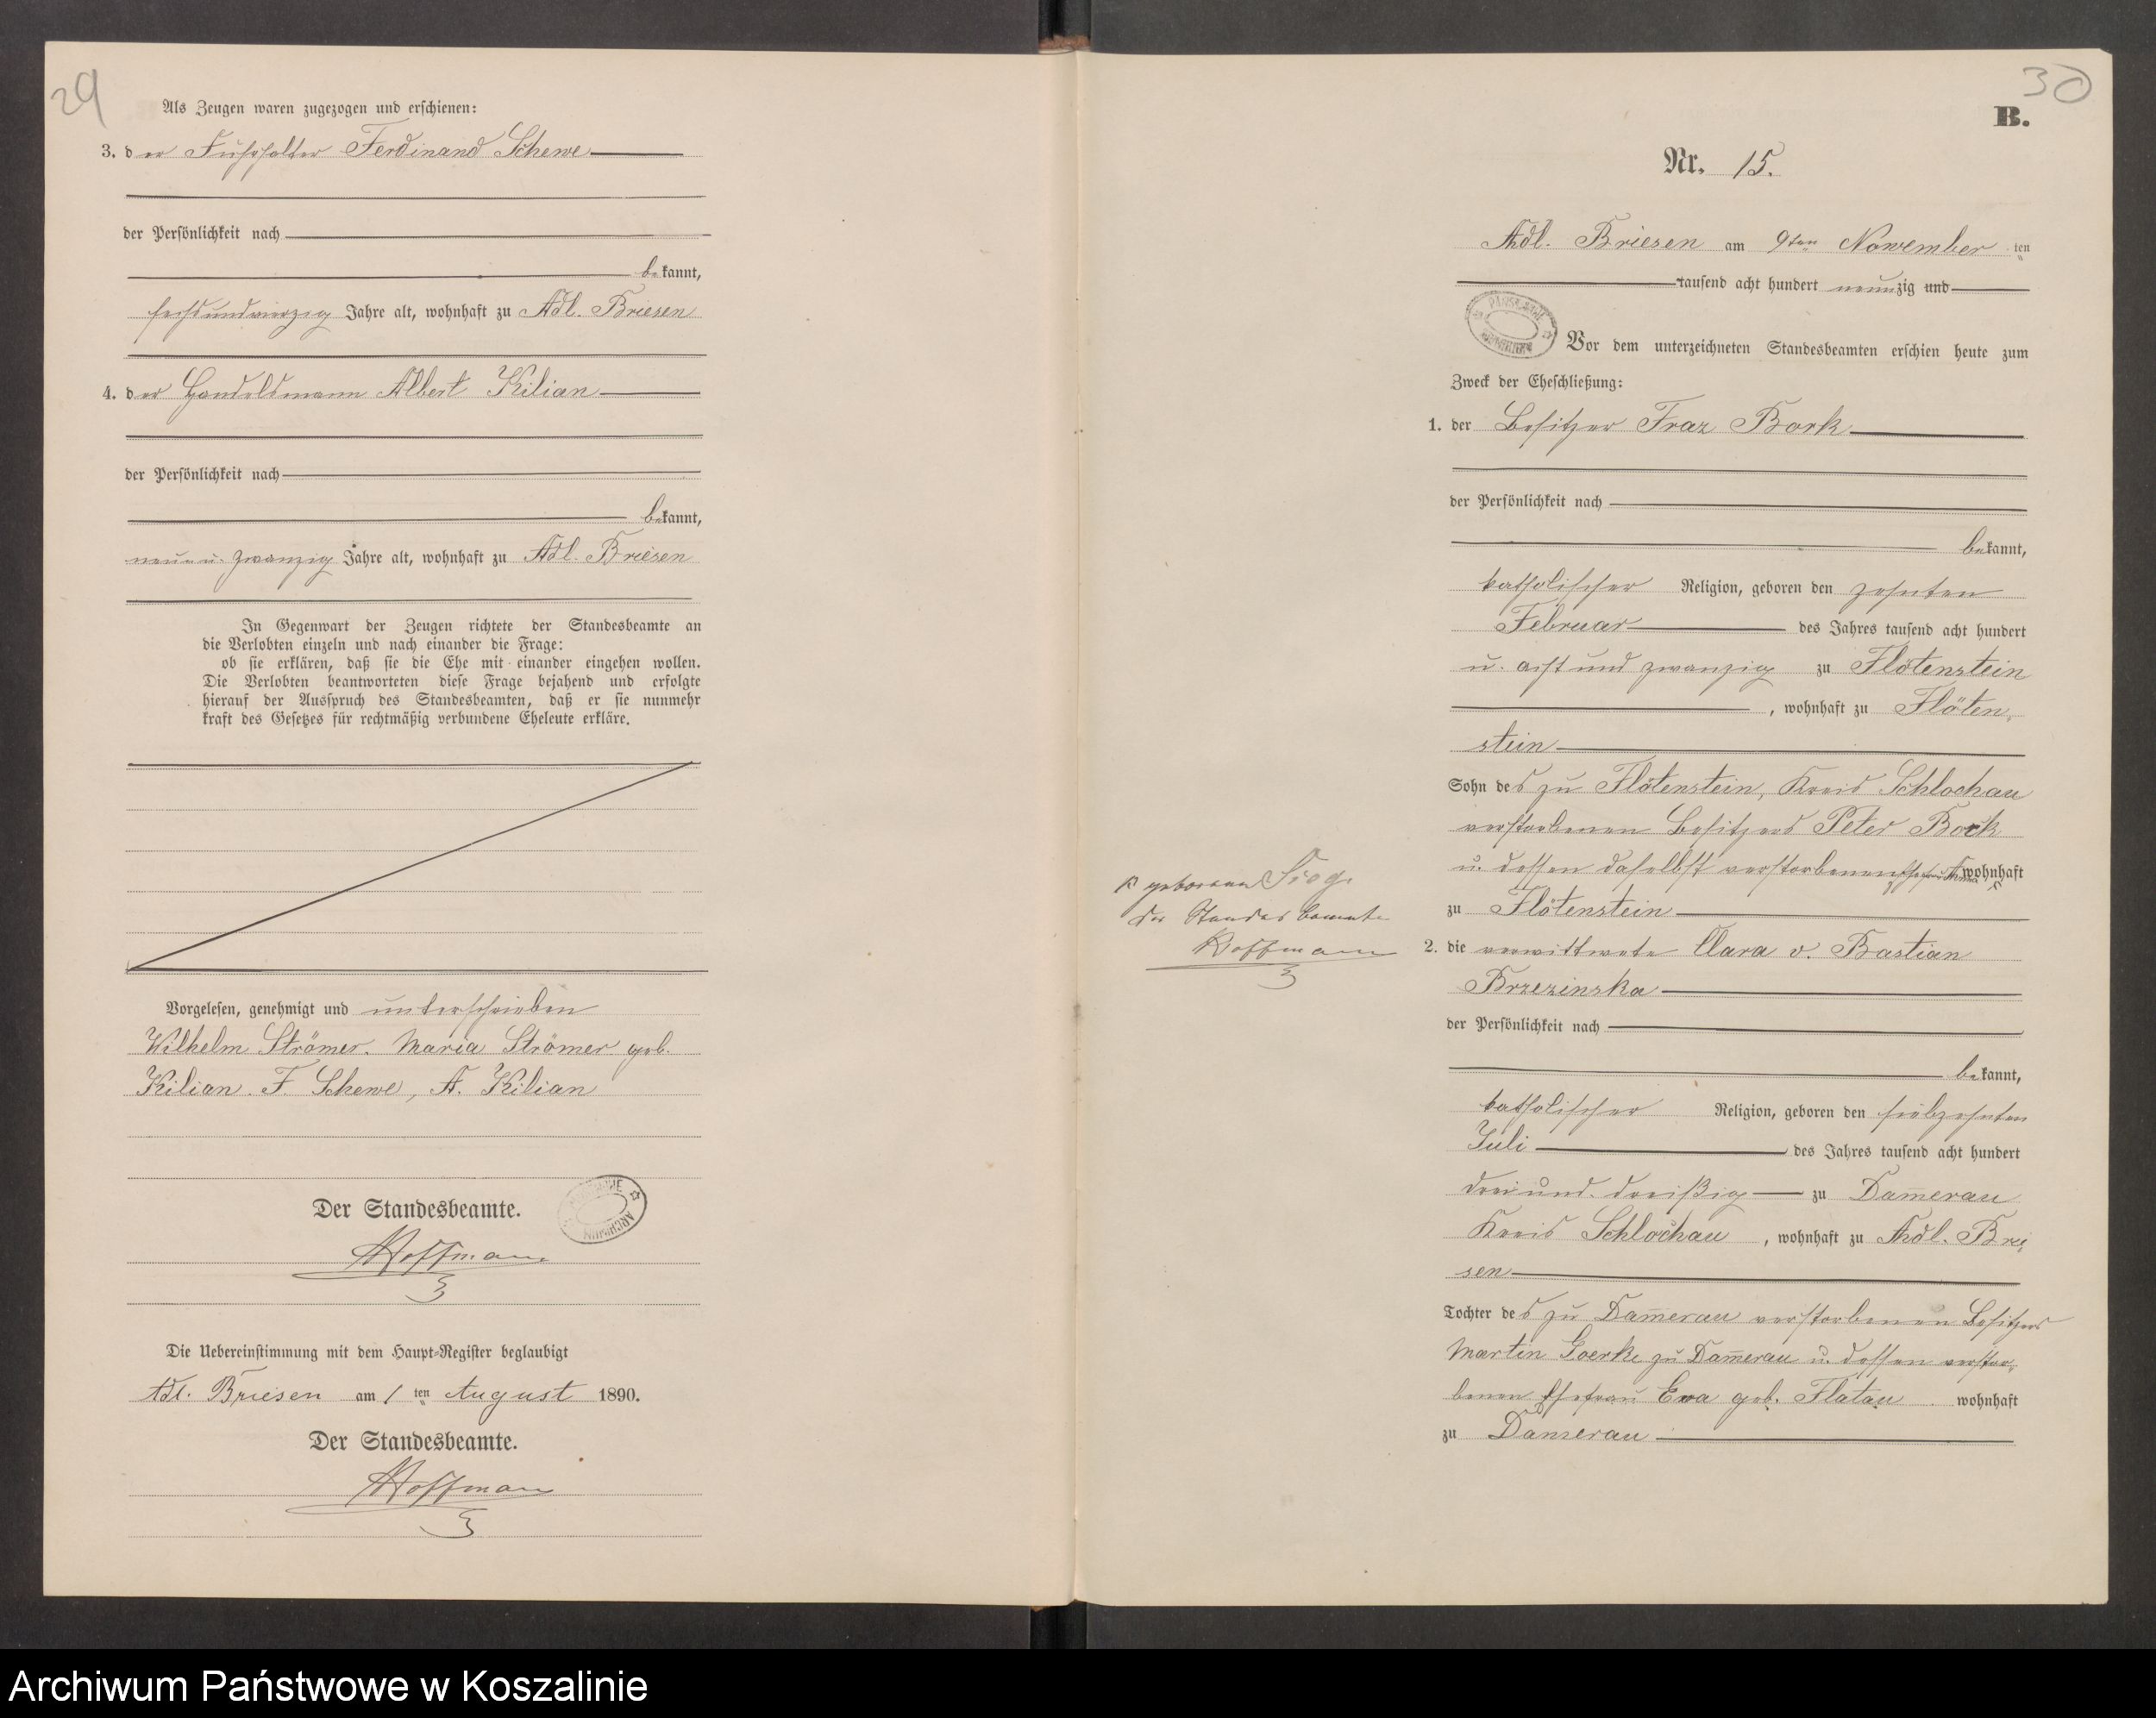 29
Als Zeugen waren zugezogen und erschienen:
3. der Fuhrhalter Ferdinand Schewe
der Persönlichkeit nach
bekannt,
sechsundvierzig Jahre alt, wohnhaft zu Adl. Briesen
4. der Handelsmann Albert Kilian
der Persönlichkeit nach
bekannt,
neun u. zwanzig Jahre alt, wohnhaft zu Adl. Briesen
In Gegenwart der Zeugen richtete der Standesbeamte an
die Verlobten einzeln und nach einander die Frage:
ob sie erklären, daß sie die Ehe mit einander eingehen wollen.
Die Verlobten beantworteten diese Frage bejahend und erfolgte
hierauf der Ausspruch des Standesbeamten, daß er sie nunmehr
kraft des Gesetzes für rechtmäßig verbundene Eheleute erkläre.
Vorgelesen, genehmigt und unterschrieben
Wilhelm Strömer. Maria Strömer geb.
Kilian. F. Schewe, A. Kilian
Der Standesbeamte.
Hoffmann
Die Uebereinstimmung mit dem Haupt-Register beglaubigt
Adl. Briesen am 1 ten August 1890.
Der Standesbeamte.
Hoffmann
30
B.
Nr. 15.
Adl. Briesen am 9ten November ten
tausend acht hundert neunzig und
Vor dem unterzeichneten Standesbeamten erschien heute zum
Zweck der Eheschließung:
1. der Besitzer Fraz Bork
der Persönlichkeit nach
bekannt,
katholischer Religion, geboren den zehnten
Februar des Jahres tausend acht hundert
u. acht und zwanzig zu Flötenstein
, wohnhaft zu Flöten,
stein
Sohn des zu Flötenstein, Kreis Schlochau
verstorbenen Besitzers Peter Bork
u. dessen daselbst verstorbenen Ehefrau wohnhaft
zu Flötenstein
geborenen
der Standesbeamte
Hoffmann
2. die verwittwete Clara v. Bastian
Brzezinska
der Persönlichkeit nach
bekannt,
katholischer Religion, geboren den siebzehnten
Juli des Jahres tausend acht hundert
drei und dreißig zu Dam̄erau
Kreis Schlochau, wohnhaft zu Adl. Brie,
sen
Tochter des zu Dam̄erau verstorbenen Besitzers
Martin Goerke zu Dam̄erau u. dessen verstor,
benen Ehefrau Eva geb. Flatau wohnhaft
zu Damerau
Archiwum Państwowe w Koszalinie